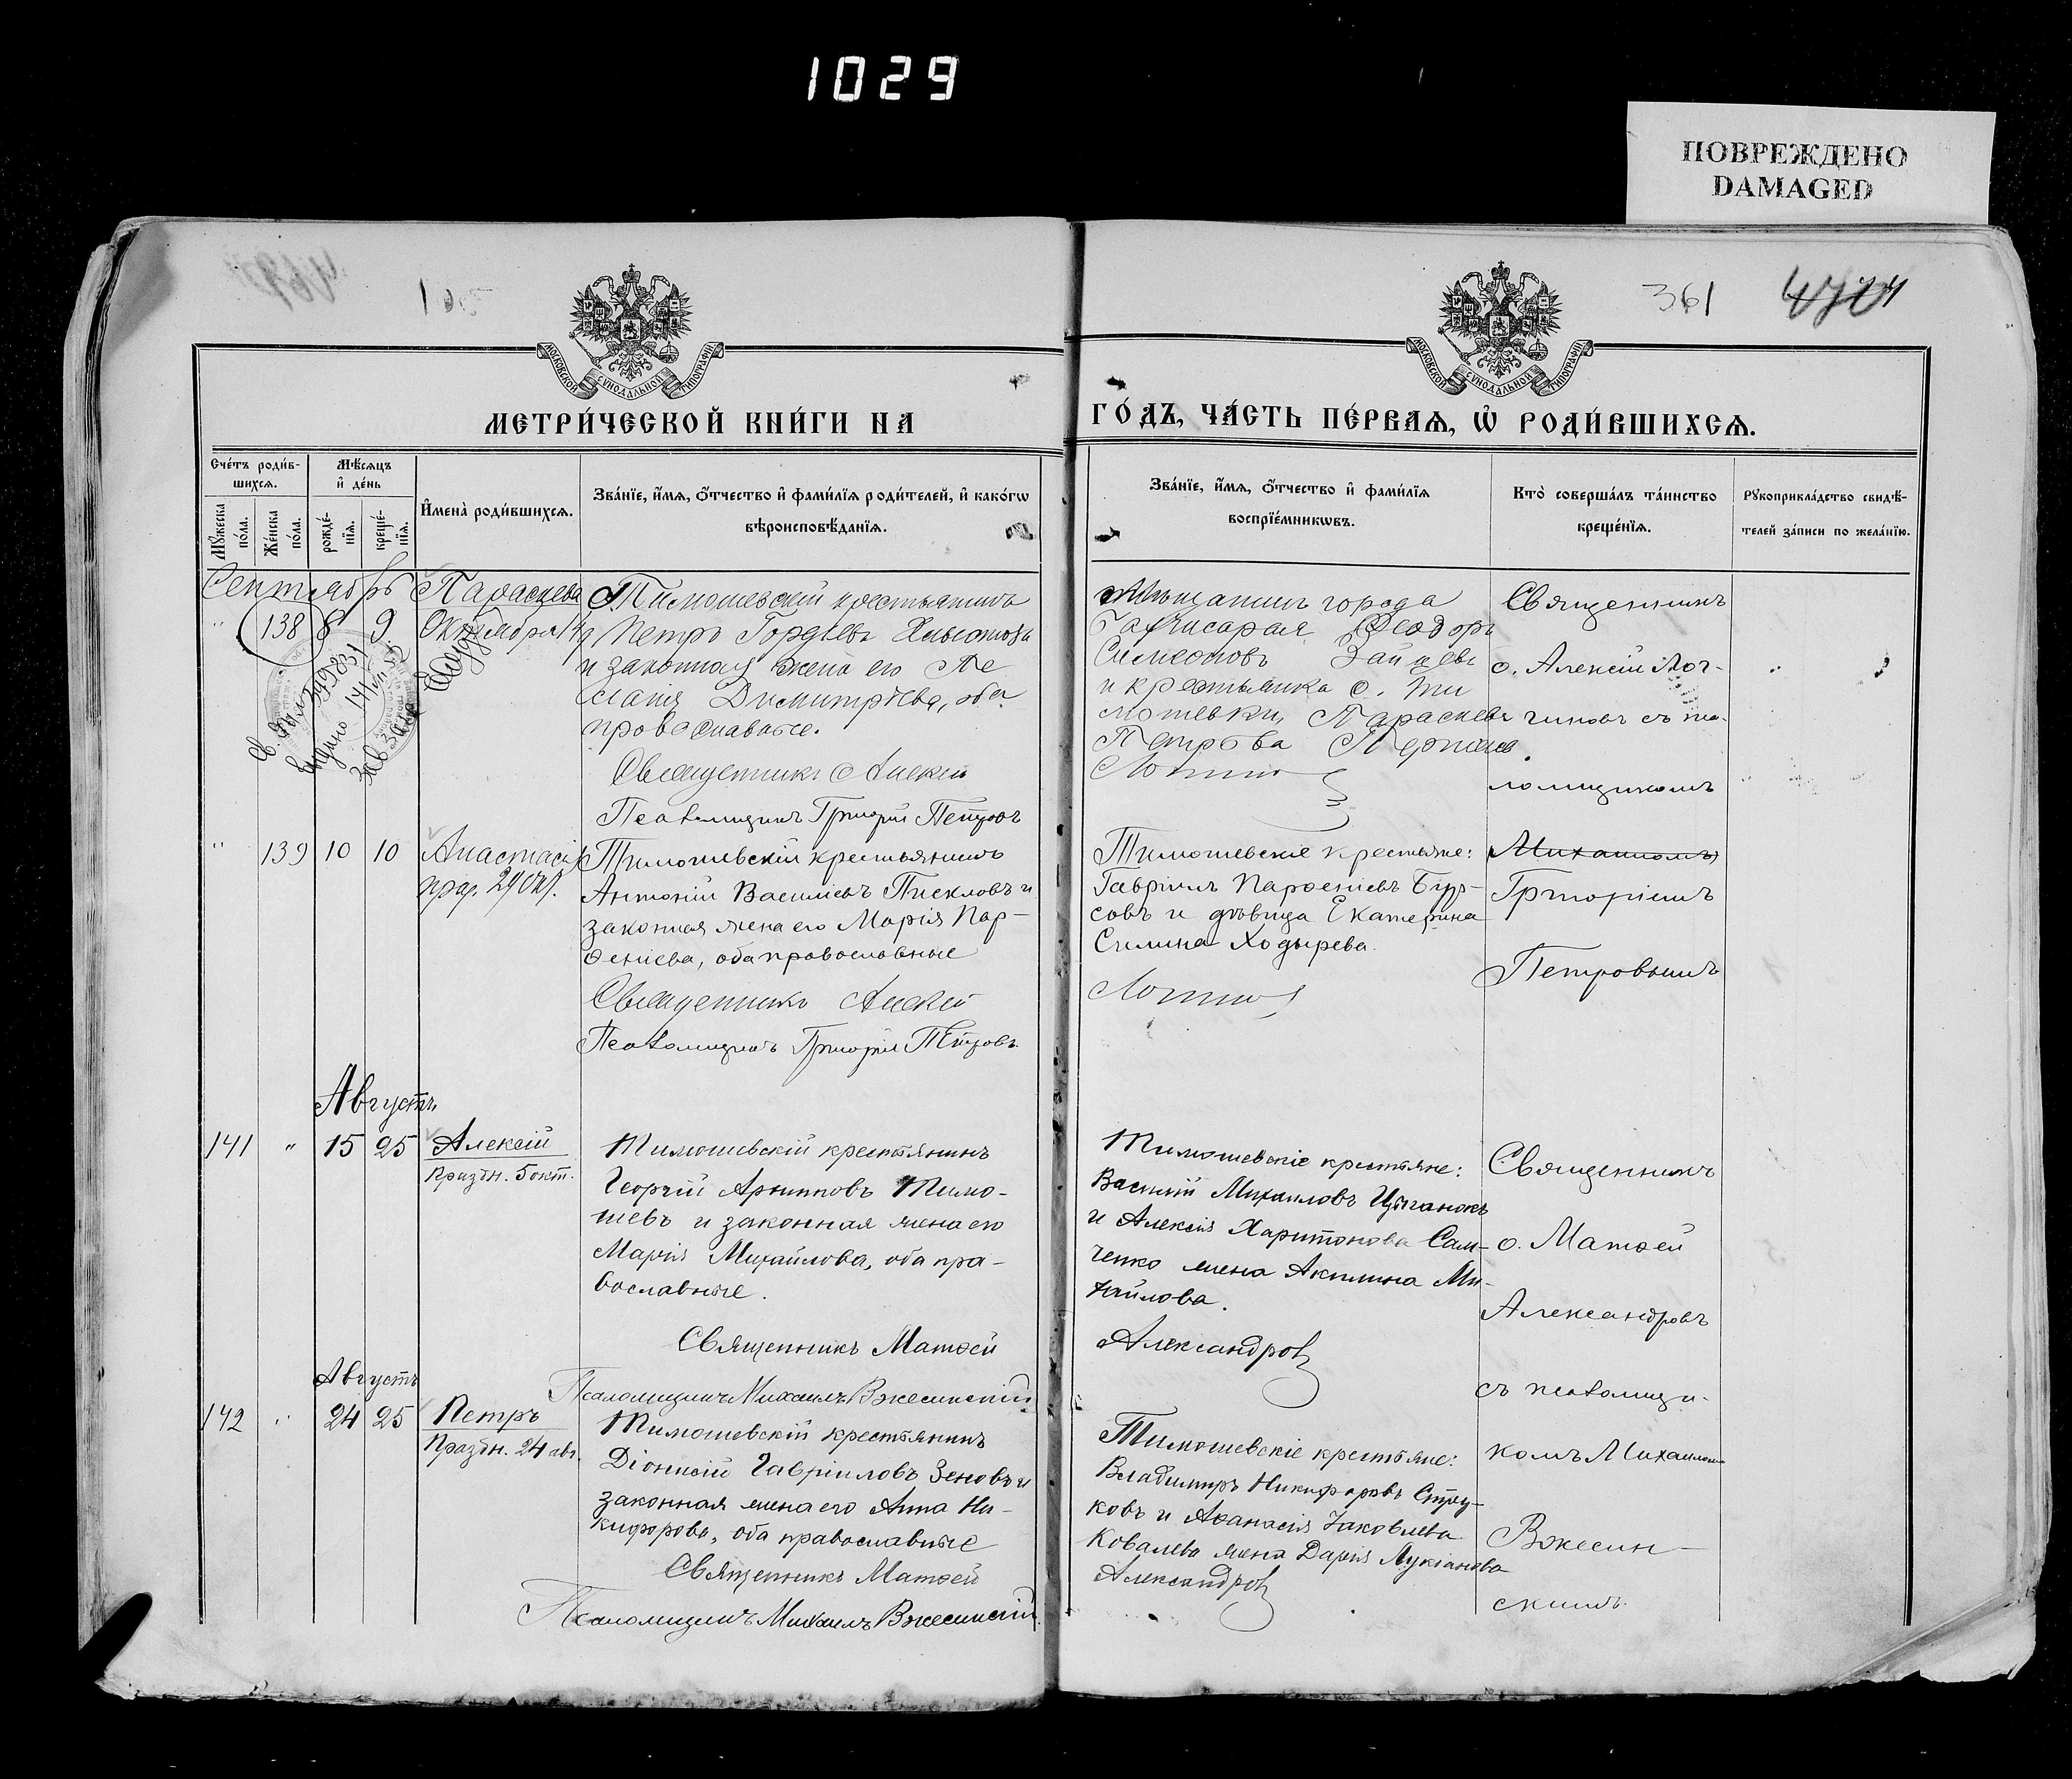 1029
ПОВРЕЖДЕНО
DAMAGED
361
МОСКОВСКОЙ СѴНОДАЛЬНОЙ ТИПОГРАФІИ
МОСКОВСКОЙ СѴНОДАЛЬНОЙ ТИПОГРАФІИ
МЕТРИ́ЧЕСКОЙ КНИ́ГИ НА
ГО́ДЪ, ЧА́СТЬ ПЕ́РВАѦ, Ѡ҆ РОДИ́ВШИХСѦ.
Счéтъ роди́в-
шихсѧ.
Мꙋ́жеска по́ла.
Же́нска по́ла.
Мѣ́сѧцъ
и҆ де́нь
рожде́-
нїѧ.
креще́-
нїѧ.
И҆мена̀ роди́вшихсѧ.
Зва́нїе, и҆́мѧ, ѻ҆́тчество и҆ фами́лїѧ роди́телей, и҆ како́гѡ
вѣроисповѣ́данїѧ.
Зва́нїе, и҆́мѧ, ѻ҆́тчество и҆ фами́лїѧ
воспрїе́мникѡвъ.
Кто̀ соверша́лъ та́инство
креще́нїѧ.
Рꙋкоприкла́дство свидѣ́-
телей за́писи по жела́нїю.
Сентябрь
" 138 8 9
Параскева
Октября 14
Тимошевскій крестьянинъ
Петръ Гордѣевъ
и законная жена его Пе
лагія Димитріева, оба
православные.
Священникъ Алексій
Псаломщикъ Григорій Петровъ
Мѣщанинъ города
Бахчисарая Ѳеодоръ
Симеоновъ Зайцевъ
и крестьянка с. Ти
мошевки, Параскева
Петрова
Священникъ
о. Алексій Лот-
гиновъ съ пса-
ломщикомъ
" 139 10 10
Анастасія
празд. 29 Окт.
Тимошевскій крестьянинъ
Антоній Василіевъ Пискловъ и
законная жена его Марія Пар-
ѳеніева, оба православные
Священникъ Алексій
Псаломщикъ Григорій Петровъ
Тимошевскіе крестьяне:
Гавріилъ Парѳеніевъ Бур-
совъ и дѣвица Екатерина
Силина Ходырева.
Михаиломъ
Григоріемъ
Петровымъ
Августъ
141 " 15 25
Алексій
Праздн. 5 окт.
Тимошевскій крестьянинъ
Георгій Архиповъ Тимо-
шевъ и законная жена его
Марія Михайлова, оба пра-
вославные.
Священникъ Матѳей
Псаломщикъ Михаилъ Вжесинскій
Тимошевскіе крестьяне:
Василій Михаиловъ Цыганокъ
и Алексія Харитонова Сам-
ченко жена Акилина Ми-
хайлова.
Александровъ
Священникъ
о. Матѳей
Александровъ
съ псаломщи-
Августъ
142 " 24 25
Петръ
Праздн. 24 авг.
Тимошевскій крестьянинъ
Діонисій Гавріиловъ Зеновъ и
законная жена его Анна Ни-
кифорова, оба православные
Священникъ Матѳей
Псаломщикъ Михаилъ Вжесинскій
Тимошевскіе крестьяне:
Владимиръ Никифоровъ Стру-
ковъ и Аѳанасія Іаковлева
Ковалева жена Дарія Лукіанова
Александровъ
комъ Михаиломъ
Вжесин-
скимъ.